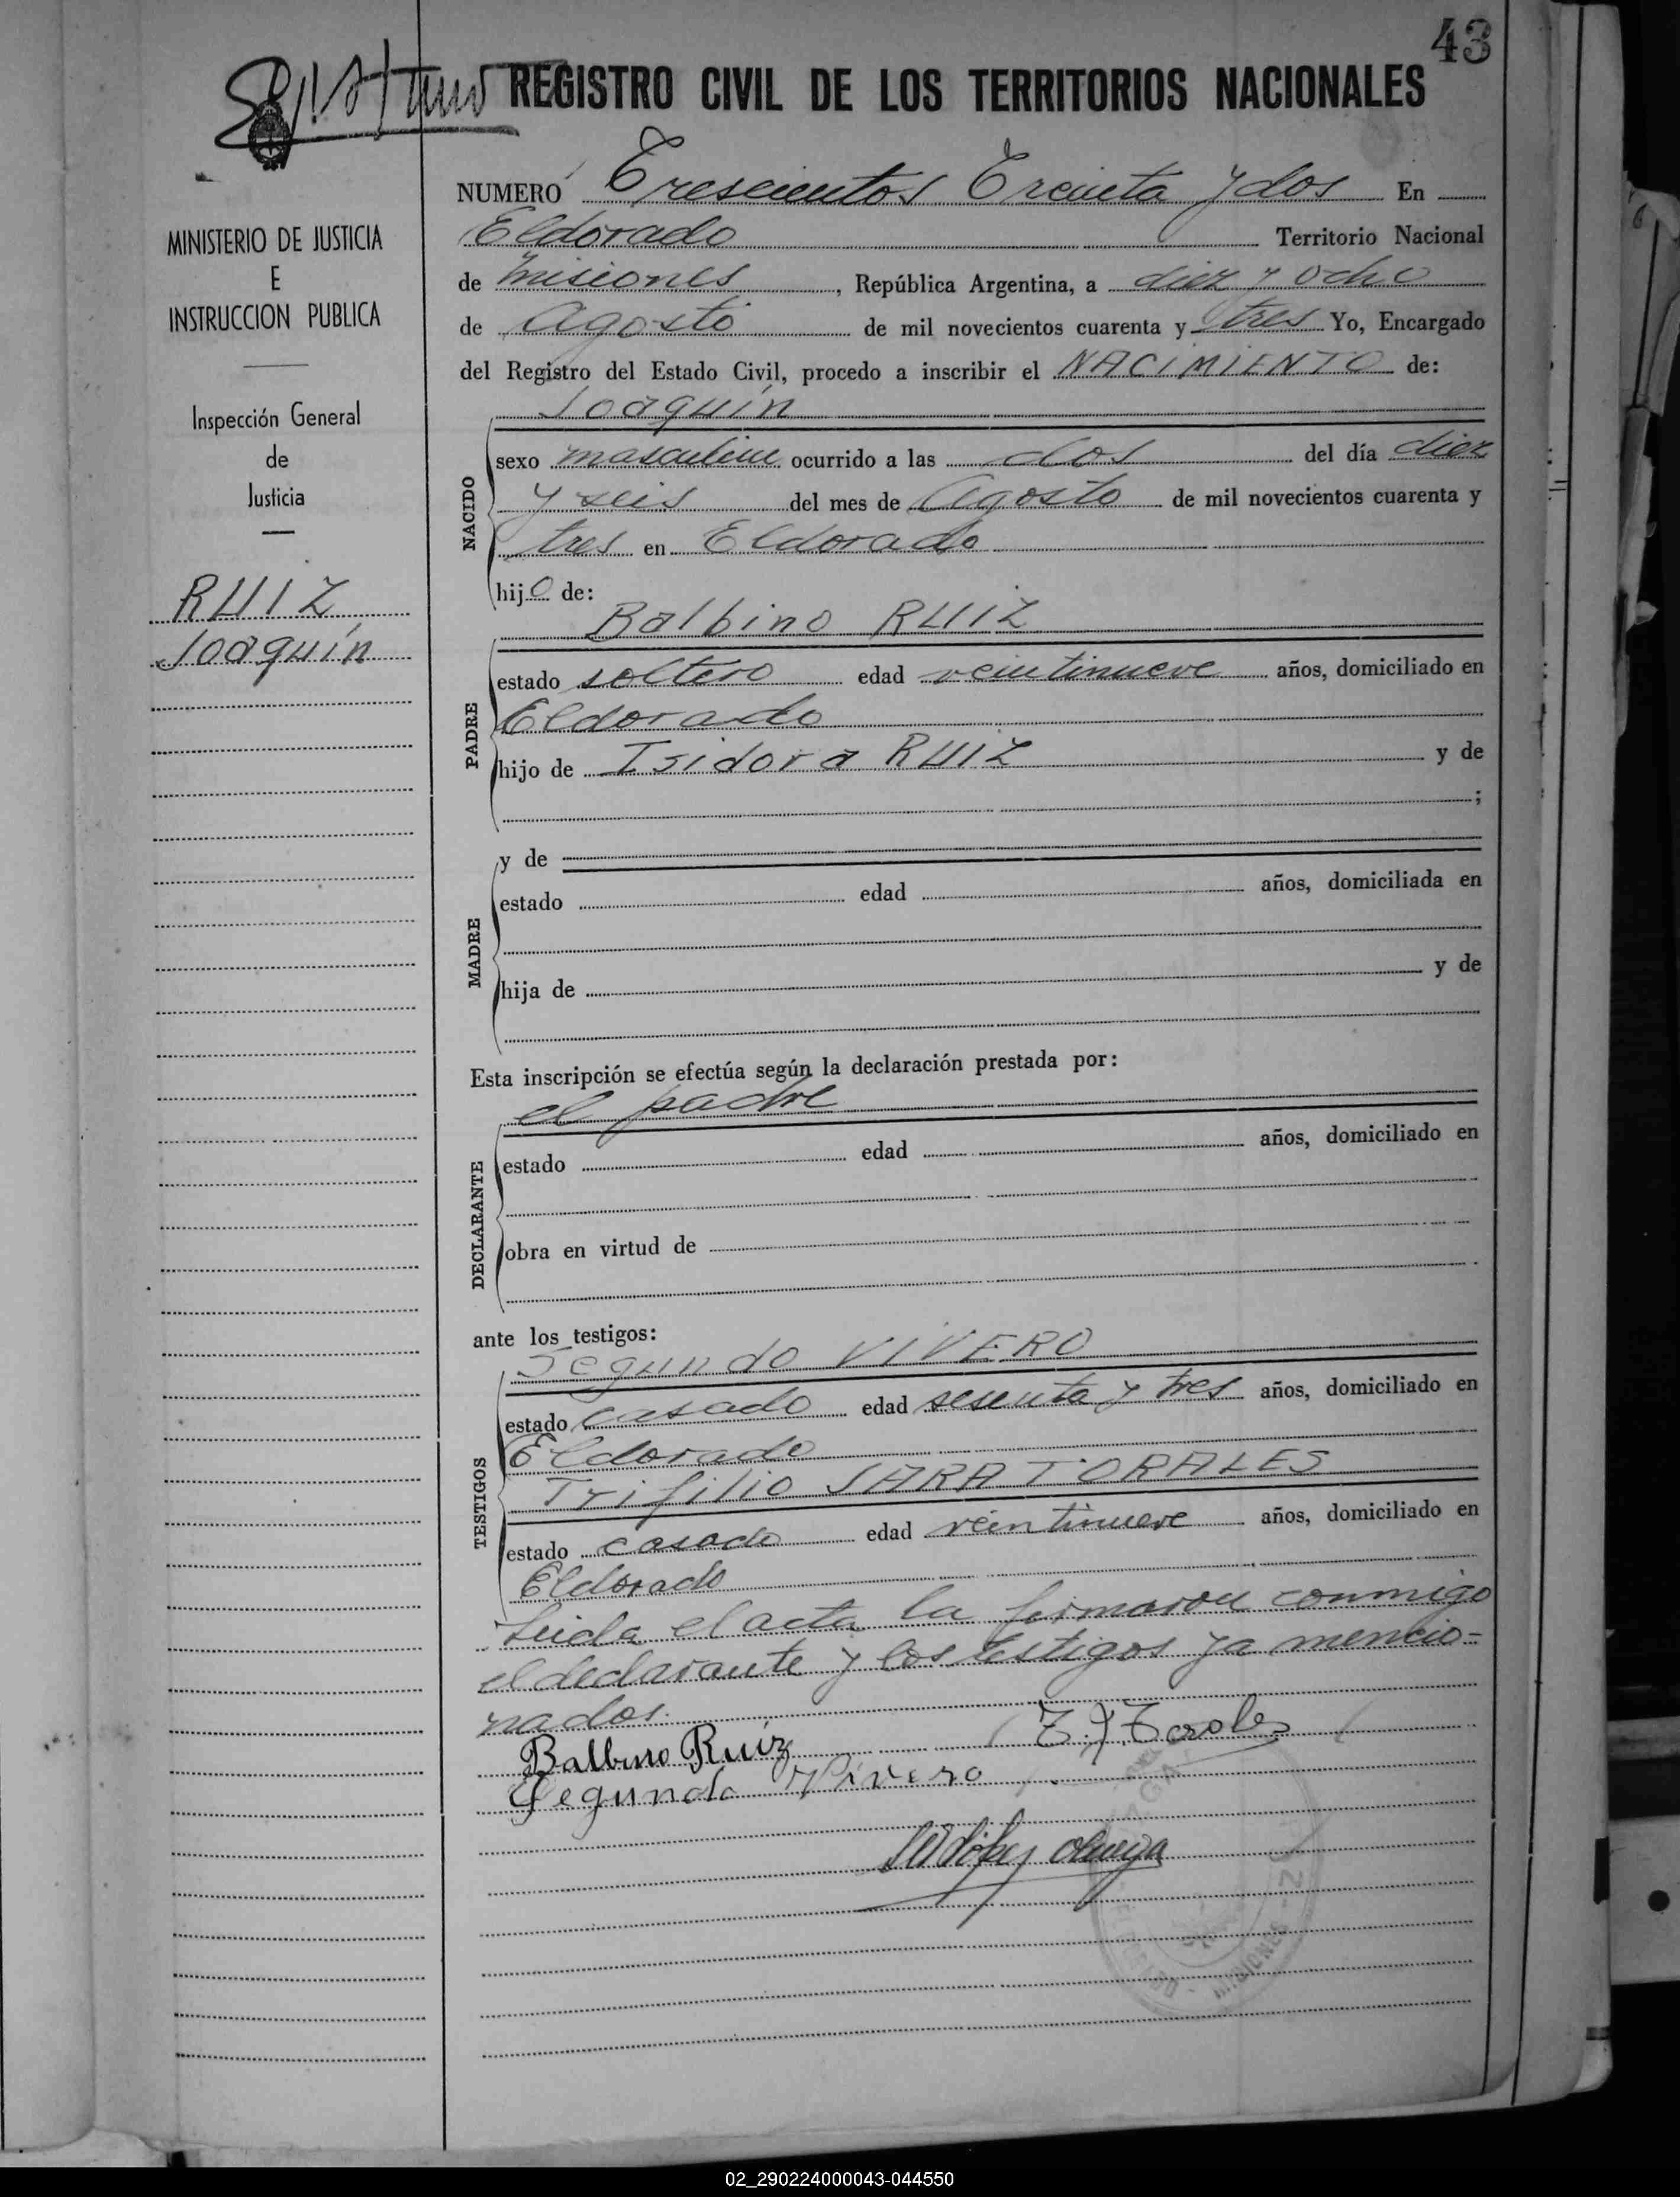 43
REGISTRO CIVIL DE LOS TERRITORIOS NACIONALES
MINISTERIO DE JUSTICIA
E
INSTRUCCION PUBLICA
Inspección General
de
Justicia
RUIZ
Joaquín
NUMERO Trescientos Treinta y dos En
Eldorado Territorio Nacional
de Misiones, República Argentina, a diez y ocho
de Agosto de mil novecientos cuarenta y tres Yo, Encargado
del Registro del Estado Civil, procedo a inscribir el NACIMIENTO de:
Joaquín
NACIDO
sexo masculino ocurrido a las dos del día diez
y seis del mes de Agosto de mil novecientos cuarenta y
tres en Eldorado
hijo de:
Balbino RUIZ
PADRE
estado soltero edad veintinueve años, domiciliado en
Eldorado
hijo de Isidora RUIZ y de
;
MADRE
y de
estado edad años, domiciliada en
hija de y de
Esta inscripción se efectúa según la declaración prestada por:
el padre
DECLARANTE
estado edad años, domiciliado en
obra en virtud de
ante los testigos:
Segundo VIVERO
TESTIGOS
estado casado edad sesenta y tres años, domiciliado en
Eldorado
Trifilio SARA TORALES
estado casado edad veintinueve años, domiciliado en
Eldorado
Leida el acta la firmaron conmigo
el declarante y los testigos ya mencio-
nados.
Balbino Ruiz
Segundo Vivero
MISIONES
02_290224000043-044550